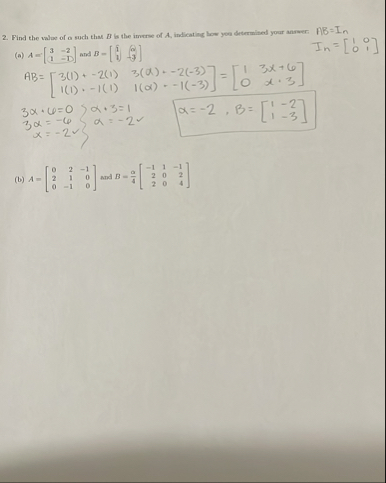 2. Find the value of α such that B is the inverse of A, indicating how you determined your answer. AB = In
(a) A = [3 -2; 1 -1] and B = [1 α; 1 -3] In = [1 0; 0 1]
AB = [3(1) + -2(1) 3(α) + -2(-3); 1(1) + -1(1) 1(α) + -1(-3)] = [1 3α+6; 0 α+3]
3α+6=0 } α+3=1
3α = -6 α = -2 ✓
α = -2 ✓
α = -2 , B = [1 -2; 1 -3]
(b) A = [0 2 -1; 2 1 0; 0 -1 0] and B = α/4 [-1 1 -1; 2 0 2; 2 0 4]